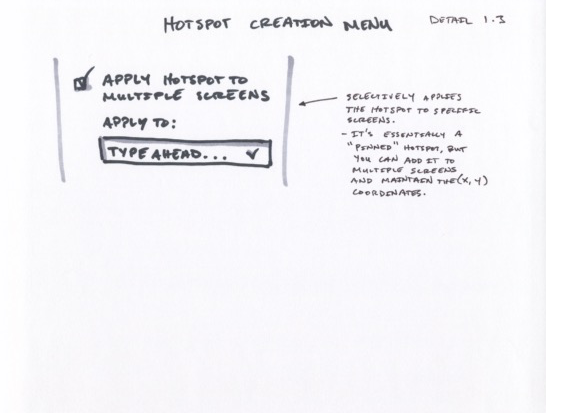 HOTSPOT CREATION MENU
DETAIL 1.3
APPLY HOTSPOT TO
MULTIPLE SCREENS
APPLY TO:
TYPE AHEAD...
SELECTIVELY APPLIES
THE HOTSPOT TO SPECIFIC
SCREENS.
- IT'S ESSENTIALLY A
"PINNED" HOTSPOT, BUT
YOU CAN ADD IT TO
MULTIPLE SCREENS
AND MAINTAIN THE (X, Y)
COORDINATES.